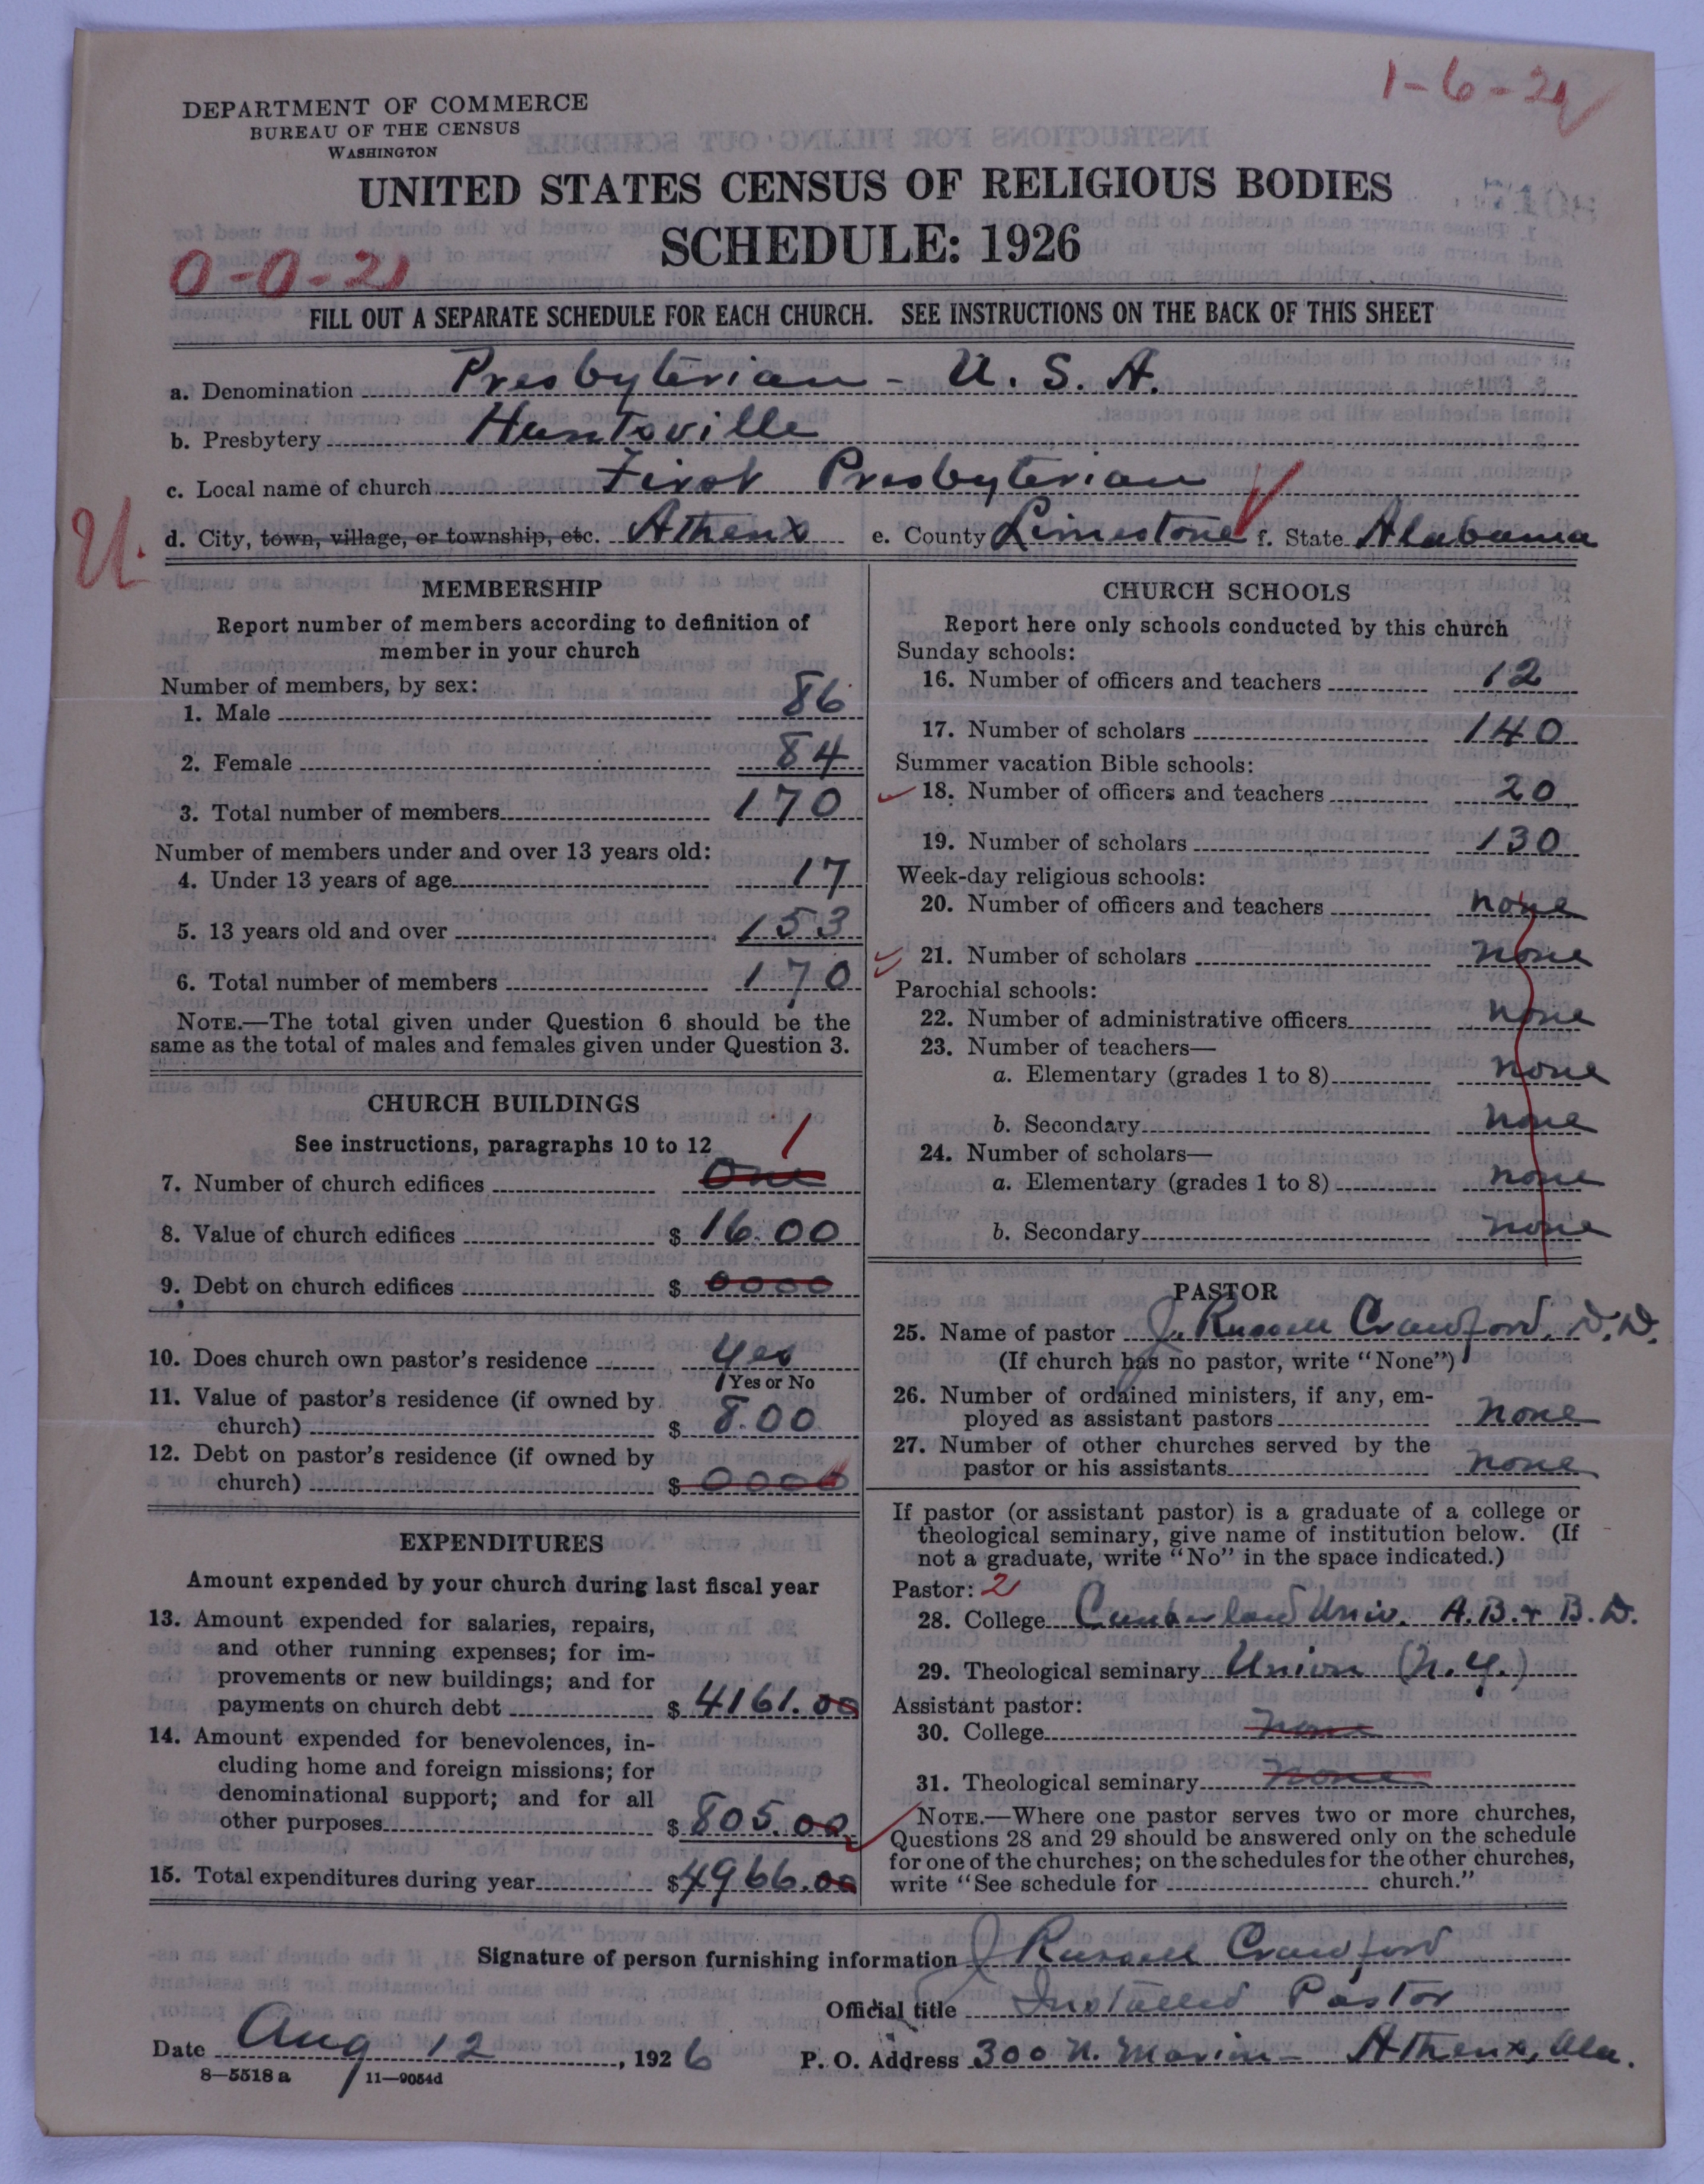 1-6-21
DEPARTMENT OF COMMERCE
BUREAU OF THE CENSUS
WASHINGTON
UNITED STATES CENSUS OF RELIGIOUS BODIES
SCHEDULE: 1926
0-0-21
FILL OUT A SEPARATE SCHEDULE FOR EACH CHURCH. SEE INSTRUCTIONS ON THE BACK OF THIS SHEET
a. Denomination Presbyterian - U. S. A.
b. Presbytery Huntsville
c. Local name of church First Presbyterian
U. d. City, town, village, or township, etc. Athens e. County Limestone f. State Alabama
MEMBERSHIP
Report number of members according to definition of
member in your church
Number of members, by sex:
1. Male 86
2. Female 84
3. Total number of members 170
Number of members under and over 13 years old:
4. Under 13 years of age 17
5. 13 years old and over 153
6. Total number of members 170
NOTE.—The total given under Question 6 should be the
same as the total of males and females given under Question 3.
CHURCH BUILDINGS
See instructions, paragraphs 10 to 12
1
7. Number of church edifices One
8. Value of church edifices $ 16.00
9. Debt on church edifices $ 0000
10. Does church own pastor's residence Yes
Yes or No
11. Value of pastor's residence (if owned by
church) $ 8.00
12. Debt on pastor's residence (if owned by
church) $ 0000
EXPENDITURES
Amount expended by your church during last fiscal year
13. Amount expended for salaries, repairs,
and other running expenses; for im-
provements or new buildings; and for
payments on church debt $ 4161.00
14. Amount expended for benevolences, in-
cluding home and foreign missions; for
denominational support; and for all
other purposes $ 805.00
15. Total expenditures during year $ 4966.00
CHURCH SCHOOLS
Report here only schools conducted by this church
Sunday schools:
16. Number of officers and teachers 12
17. Number of scholars 140
Summer vacation Bible schools:
18. Number of officers and teachers 20
19. Number of scholars 130
Week-day religious schools:
20. Number of officers and teachers none
21. Number of scholars none
Parochial schools:
22. Number of administrative officers none
23. Number of teachers—
a. Elementary (grades 1 to 8) none
b. Secondary none
24. Number of scholars—
a. Elementary (grades 1 to 8) none
b. Secondary none
PASTOR
25. Name of pastor J. Russell Crawford, D.D.
(If church has no pastor, write "None")
26. Number of ordained ministers, if any, em-
ployed as assistant pastors none
27. Number of other churches served by the
pastor or his assistants none
If pastor (or assistant pastor) is a graduate of a college or
theological seminary, give name of institution below. (If
not a graduate, write "No" in the space indicated.)
Pastor: 2
28. College Cumberland Univ. A.B. & B.D.
29. Theological seminary Union (N.Y.)
Assistant pastor:
30. College none
31. Theological seminary none
NOTE.—Where one pastor serves two or more churches,
Questions 28 and 29 should be answered only on the schedule
for one of the churches; on the schedules for the other churches,
write "See schedule for church."
Signature of person furnishing information J Russell Crawford
Official title Installed Pastor
Date Aug 12, 1926 P. O. Address 300 N. Marion - Athens, Ala.
8—5518 a 11—9054d